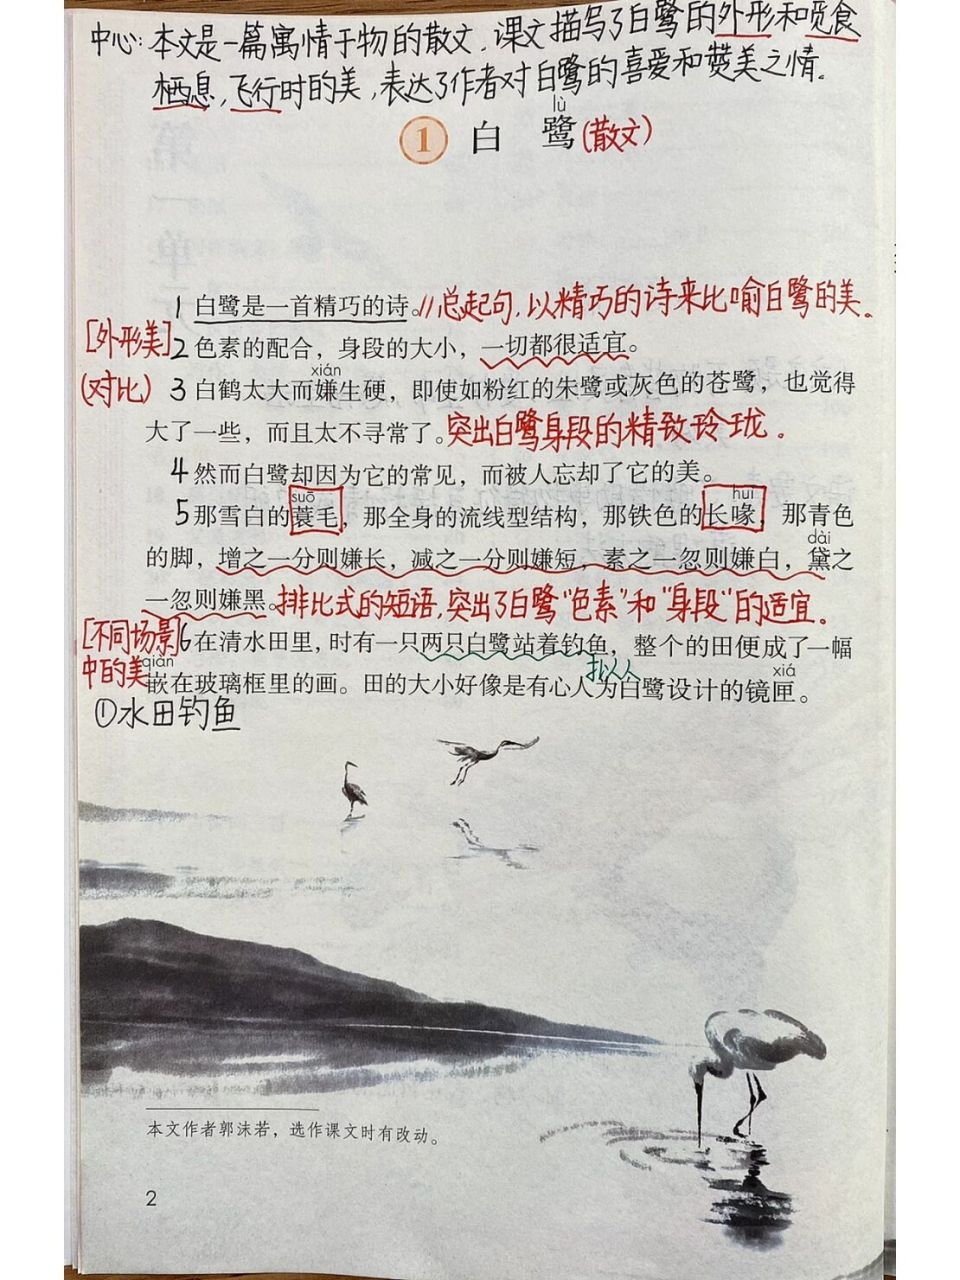 中心:本文是一篇寓情于物的散文,课文描写了白鹭的外形和觅食
栖息,飞行时的美,表达了作者对白鹭的喜爱和赞美之情。
lù
1 白 鹭(散文)
1 白鹭是一首精巧的诗。//总起句,以精巧的诗来比喻白鹭的美。
[外形美]
2 色素的配合,身段的大小,一切都很适宜。
xián
(对比) 3 白鹤太大而嫌生硬,即使如粉红的朱鹭或灰色的苍鹭,也觉得
大了一些,而且太不寻常了。突出白鹭身段的精致玲珑。
4 然而白鹭却因为它的常见,而被人忘却了它的美。
suō huì
5 那雪白的蓑毛,那全身的流线型结构,那铁色的长喙,那青色
dài
的脚,增之一分则嫌长,减之一分则嫌短,素之一忽则嫌白,黛之
一忽则嫌黑。排比式的短语,突出了白鹭“色素”和“身段”的适宜。
[不同场景 6 在清水田里,时有一只两只白鹭站着钓鱼,整个的田便成了一幅
中的美] qiàn 拟人 xiá
嵌在玻璃框里的画。田的大小好像是有心人为白鹭设计的镜匣。
①水田钓鱼
本文作者郭沫若,选作课文时有改动。
2